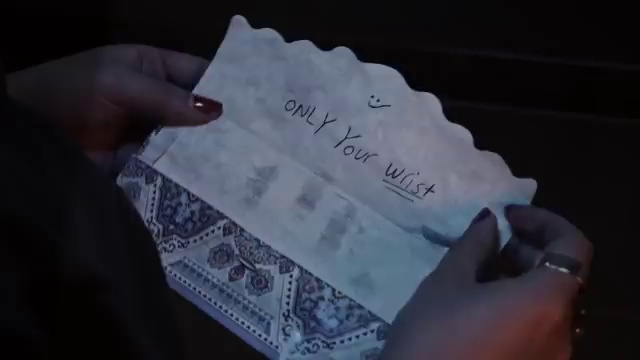 ONLY Your wrist